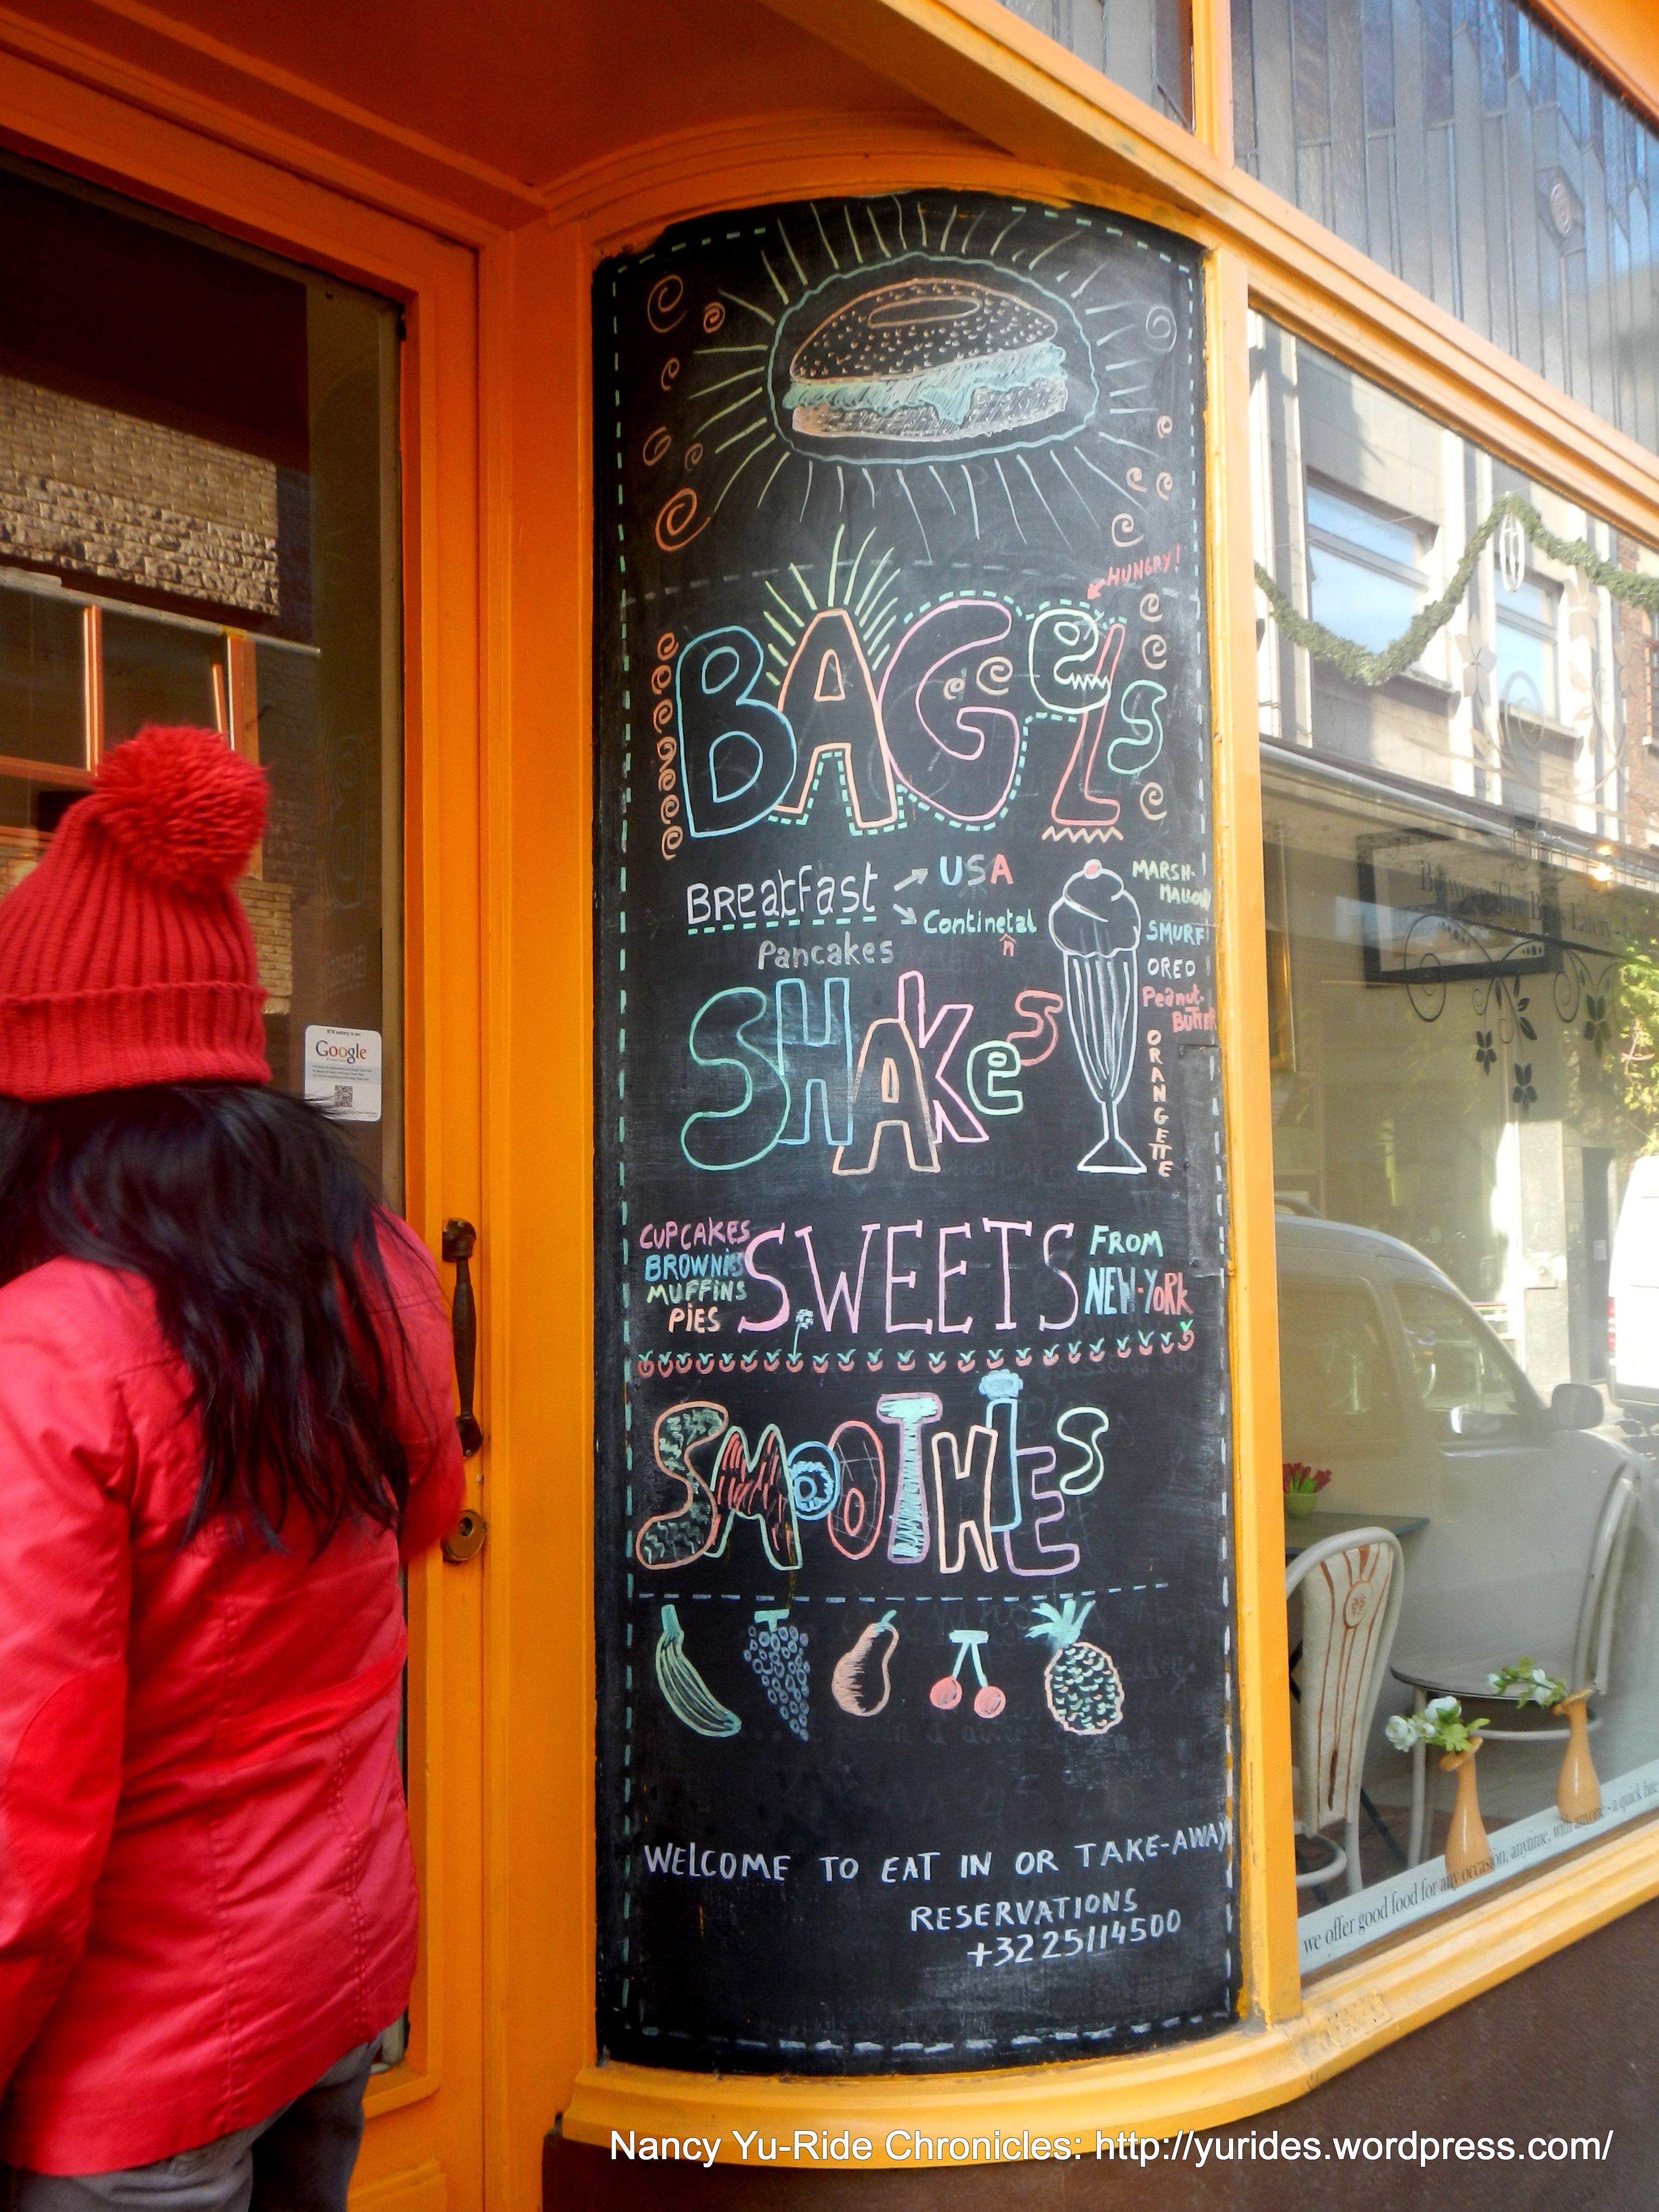 HUNGRY!
BAGELS
BREAKFAST
USA
Continetal
n
Pancakes
SHAKES
MARSH-
MALLOW
SMURF
OREO
Peanut-
BUTTER
ORANGETTE
CUPCAKES
BROWNIS
MUFFINS
PIES
SWEETS
FROM
NEW-YORK
SMOOTHIES
WELCOME TO EAT IN OR TAKE-AWAY
RESERVATIONS
+3225114500
Google
we offer good food for any occasion, anytime, with anyone - a quick bite
Nancy Yu-Ride Chronicles: http://yurides.wordpress.com/